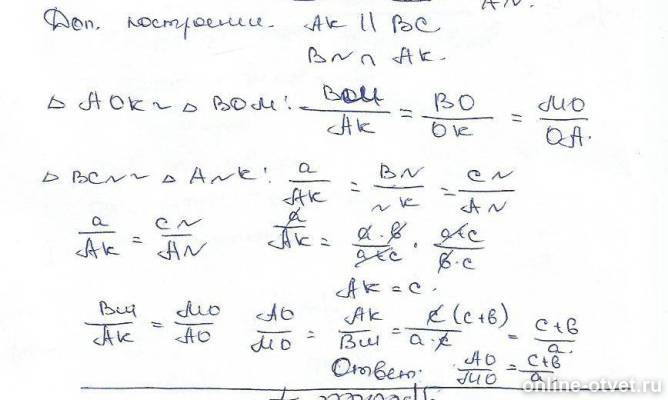 AN.
Доп. построении. AK || BC
BN ∩ AK.
△ AOK ~ △ BOM: BM/AK = BO/OK = MO/OA.
△ BCN ~ △ ANK: a/AK = BN/NK = CN/AN
a/AK = CN/AN a/AK = a·b/a+c · a+c/b·c
AK = c.
BM/AK = MO/AO AO/MO = AK/BM = c(c+b)/a·c = c+b/a.
Ответ: AO/MO = c+b/a
online-otvet.ru